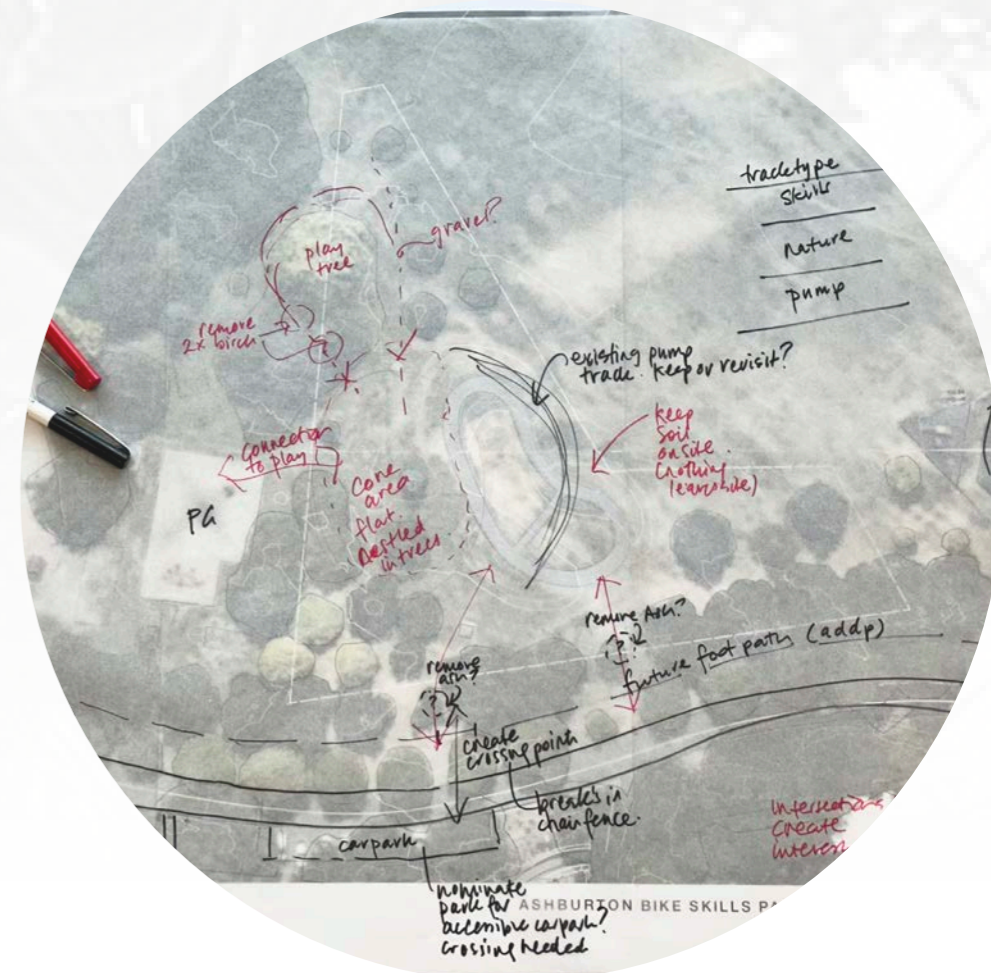 tracktype
skills
nature
pump
gravel?
play
tree
remove
2x birch
existing pump
track. keep or revisit?
keep
soil
onsite.
connection
to play
PG
Cone
area
flat.
Nestled
in trees.
remove Ash?
?
future foot path (addp)
remove
ash?
?
create
crossing points
breaks in
chain fence.
carpark
Intersections
Create
interest
nominate
park for
accessible carpark?
crossing needed
ASHBURTON BIKE SKILLS PA